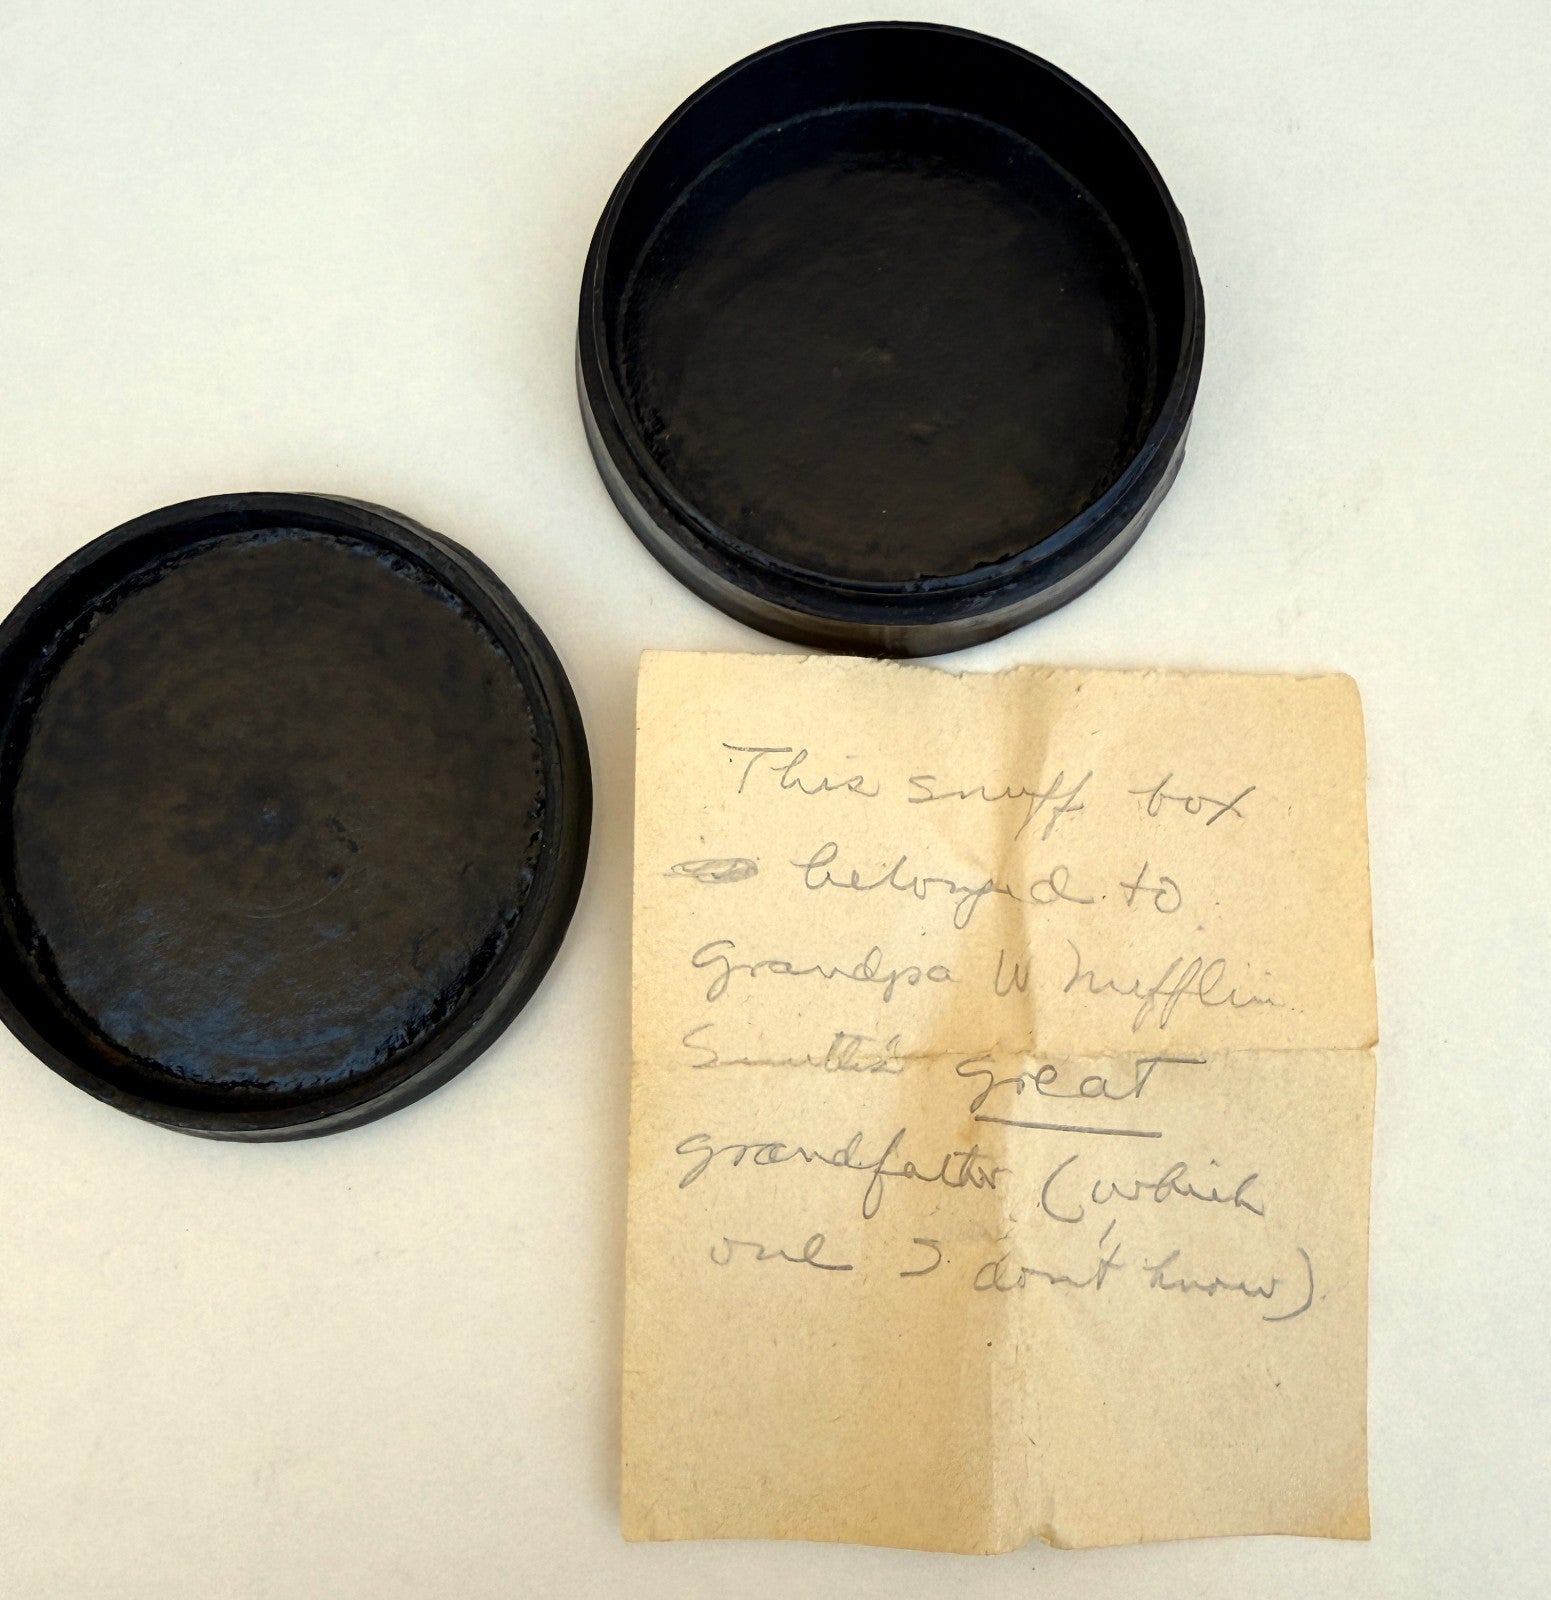 This snuff box
belonged to
Grandpa W Mifflin
Smith's great
grandfather (which
one I don't know)